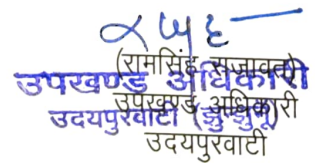 (रामसिंह राजावत)
उपखण्ड अधिकारी
उपखण्ड अधिकारी
उदयपुरवाटी (झुन्झुनू)
उदयपुरवाटी